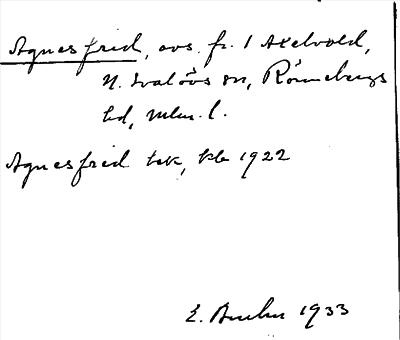 Agnesfrid, avs. fr. 1 Axelvold,
N. Svalövs sn, Rönnebergs
hd, Mlm. l.
Agnesfrid tek, kb 1922
E. 1933